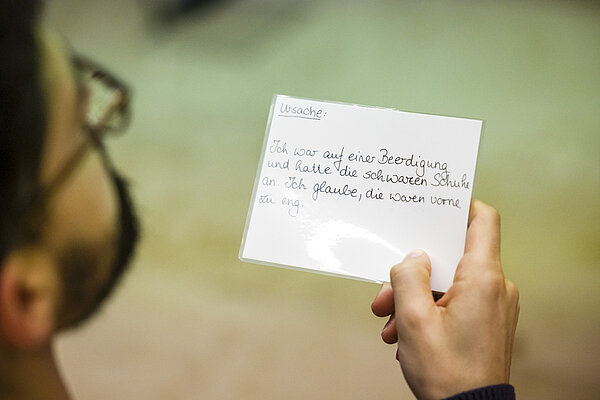 Ursache:
Ich war auf einer Beerdigung
und hatte die schwarzen Schuhe
an. Ich glaube, die waren vorne
zu eng.